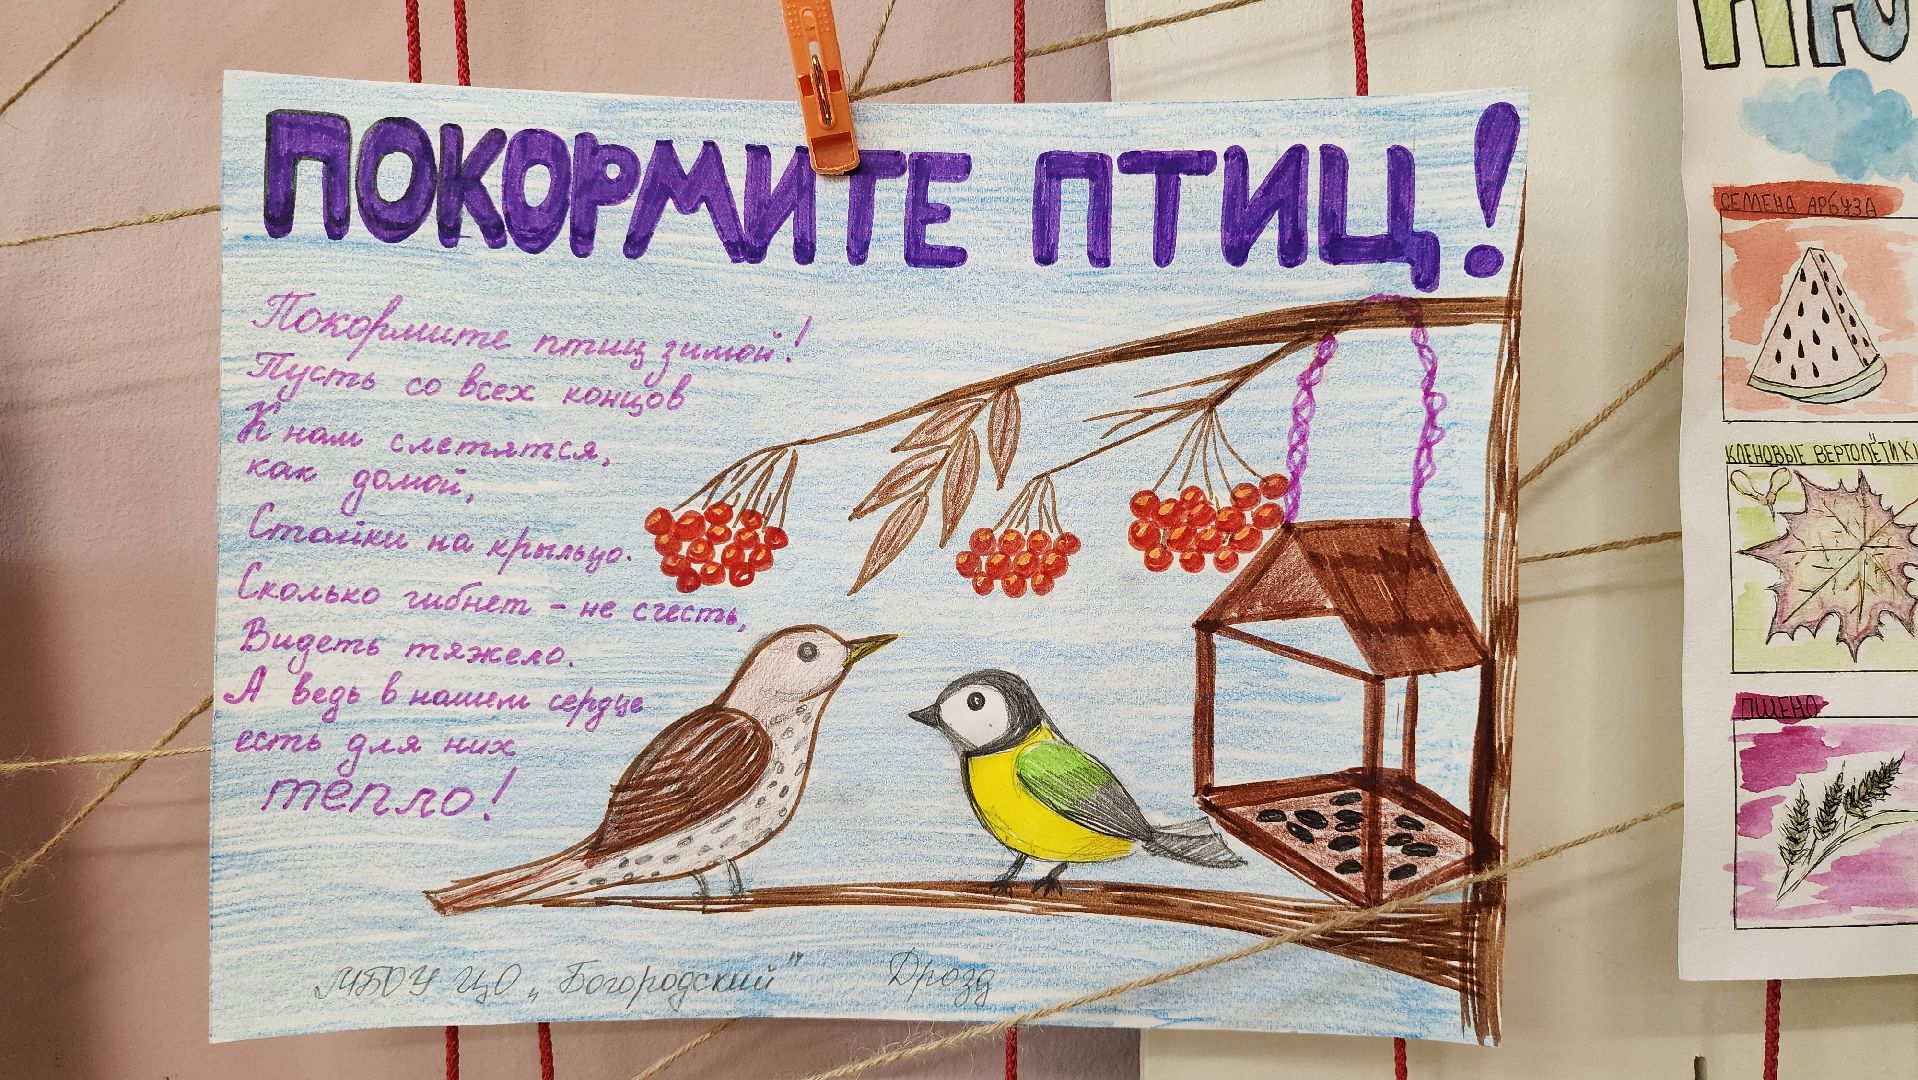 ПОКОРМИТЕ ПТИЦ!
Покормите птиц зимой!
Пусть со всех концов
К нам слетятся,
как домой,
Стайки на крыльцо.
Сколько гибнет - не счесть,
Видеть тяжело.
А ведь в нашем сердце
есть для них
тепло!
МБОУ ЦО „Богородский" Дрозд
СЕМЕНА АРБУЗА
КЛЕНОВЫЕ ВЕРТОЛЁТИКИ
ПШЕНО